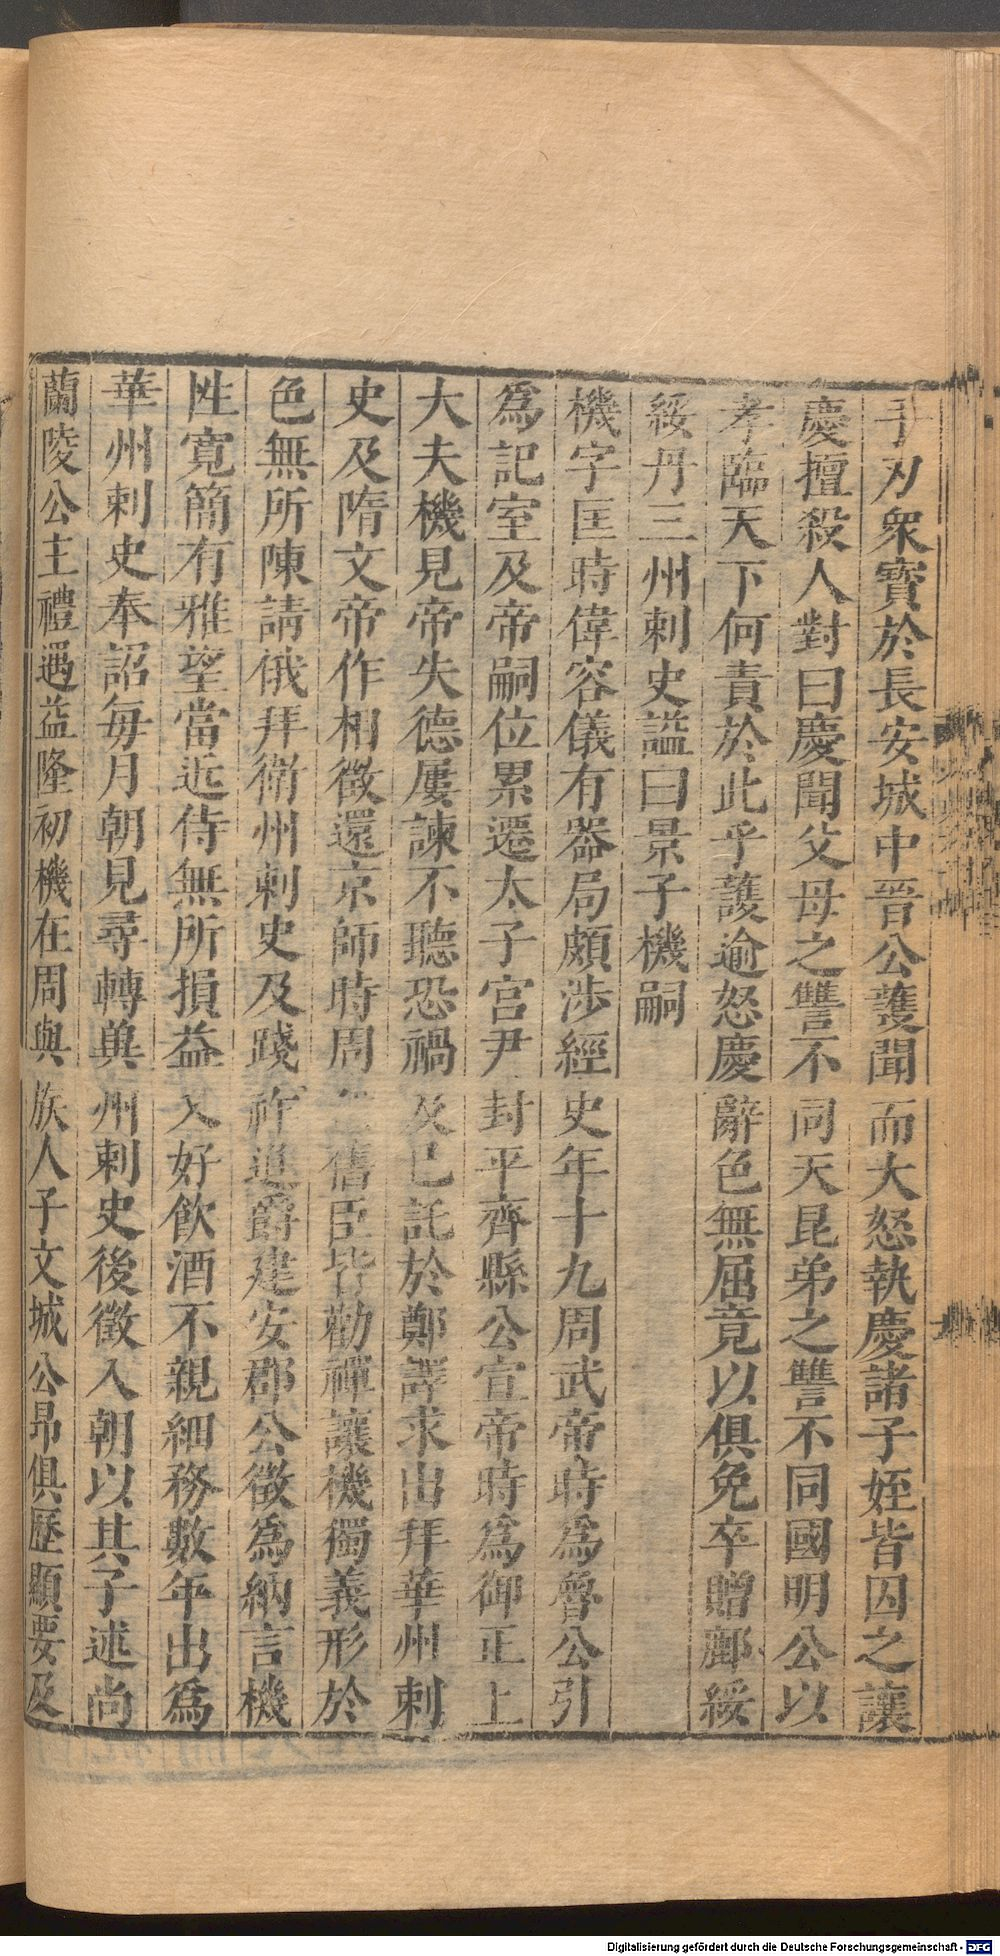 手刃衆寳於長安城中晋公䕶聞而大怒執慶諸子姪皆囚之讓
慶擅殺人對曰慶聞父母之讐不同天昆弟之讐不同國明公以
孝臨天下何責於此乎䕶逾怒慶辭色無屈竟以俱免卒贈鄜綏
綏丹三州刺史謚曰景子機嗣
機字匡時偉容儀有器局頗渉經史年十九周武帝時爲魯公引
爲記室及帝嗣位累遷太子宫尹封平齊縣公宣帝時爲御正上
大夫機見帝失德屢諫不聽恐禍及已託於鄭譯求出拜華州刺
史及隋文帝作相徵還京師時周舊臣皆勸禪讓機獨義形於
色無所陳請俄拜衛州刺史及踐祚進爵建安郡公徵爲納言機
性寛簡有雅望當近侍無所損益又好飲酒不親細務數年出爲
華州刺史奉詔每月朝見尋轉兾州刺史後徵入朝以其子述尚
蘭陵公主禮遇益隆初機在周與族人子文城公昂俱歷顯要及
Digitalisierung gefördert durch die Deutsche Forschungsgemeinschaft - DFG